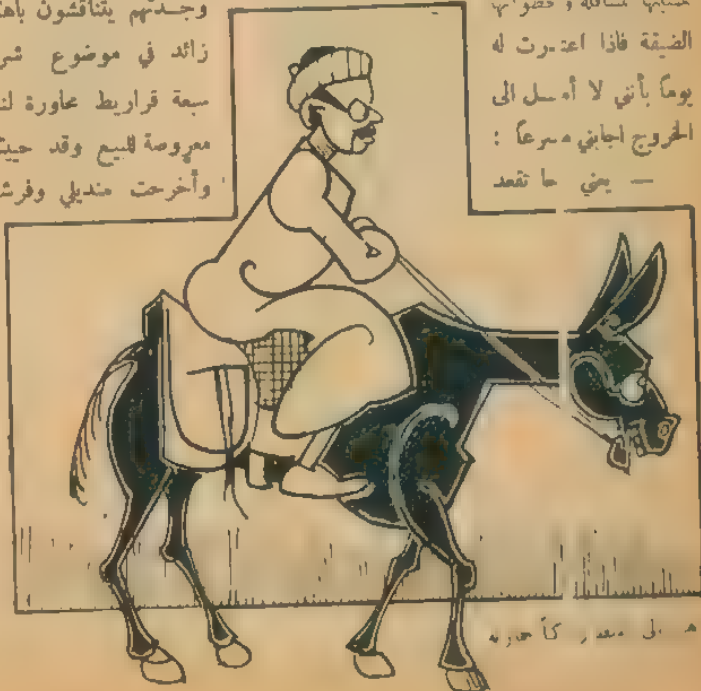 وخطواتها
الضيقة فاذا اعتذرت له
يوماً بأنني لا أميل الى
الخروج اجابني مسرعاً :
— يعني حا تقعد
وجدتهم يتناقشون باهتـ
زائد في موضوع شر
سبعة قراريط مجاورة لنـ
معروضة للبيع وقد حييتـ
وأخرجت منديلي وفرشـ
الى